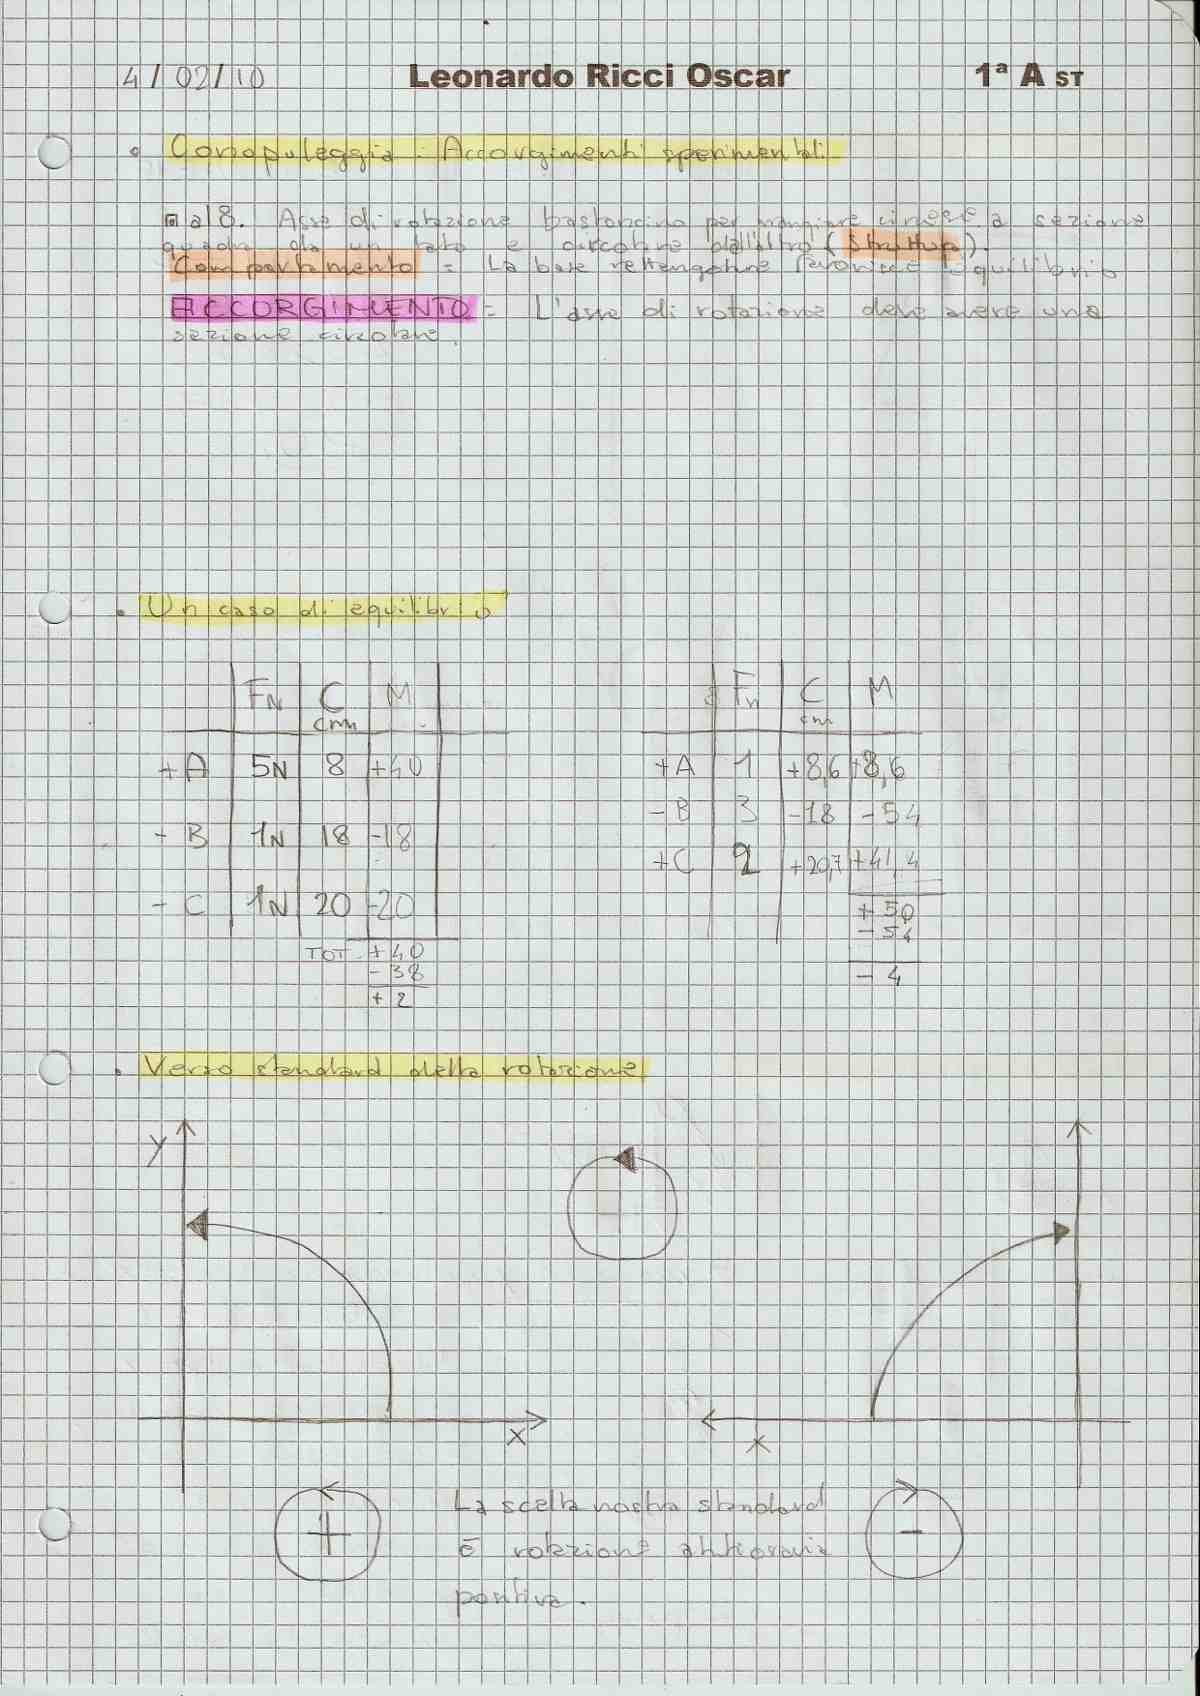 4/02/10 Leonardo Ricci Oscar 1ª A ST
Conopuleggia: Accorgimenti sperimentali
a 8. Asse di rotazione bastoncino per mangiare cinese a sezione
quadra da un lato e circolare dall'altro (Struttura).
Comportamento = La base rettangolare favorisce equilibrio
ACCORGIMENTO = L'asse di rotazione deve avere una
sezione circolare.
Un caso di equilibrio
FN C M
cm
+ A 5N 8 +40
- B 1N 18 -18
- C 1N 20 -20
TOT +40
- 38
+ 2
Fn C M
cm
+A 1 +8,6 +8,6
- B 3 -18 -54
+C 2 +20,7 +41,4
+ 50
- 54
- 4
Verso standard della rotazione
y
x
x
+
La scelta nostra standard
è rotazione antioraria
positiva.
-